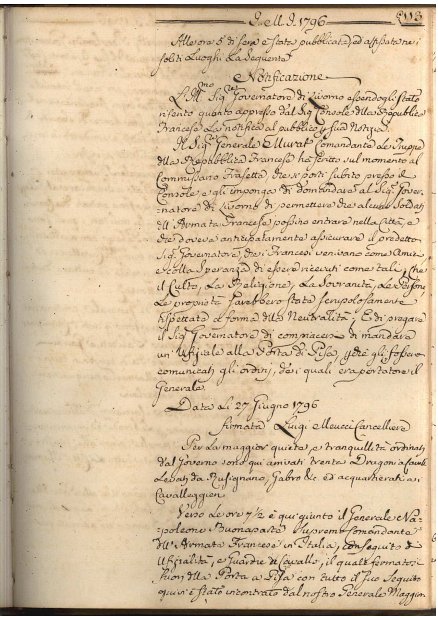 I. M. I. 1796 113
Alle ore 5 di sera è stata pubblicata, ed affissata nei
soliti Luoghi La Seguente
Notificazione
L'Ill.mo Sig.re Governatore di Livorno essendogli stato
rifento quanto appresso dal Sig. Console della Repubblica
Francese La notifica al pubblico p. sua Notizia.
Il Sig. Generale Murat Comandante Le Truppe
della Repubblica Francese ha scritto sul momento al
Commissario Frasetta, che si porti subito presso il
Console e gl'imponga di domandare al Sig. Gover-
natore di Livorno di permettere che alcuni Soldati
dell'Armata Francese possino entrare nella Città, e
che doveva anticipatamente assicurare il predetto
Sig. Governatore, che i Francesi venivano come Amici
colla Speranza di essere ricevuti come tali, che
il Culto, La Religione, La Sovranità, Le Persone,
Le proprietà sarebbero state scrupolosamente
rispettate a forma della Neutralità, E di pregare
il Sig. Governatore di compiacersi di mandare
un' Ufiziale alla Porta di Pisa, perche gli fossero
comunicati gli ordini, de i quali era portatore il
Generale.
Data Li 27 Giugno 1796
firmata Luigi Meucci Cancelliere
Per La maggior quiete, e tranquillità ordinati
dal Governo sono qui arrivati trenta Dragoni a Cavallo
Levati da Rusignano, Gabro &c. ed acquartierati a
Cavalleggieri
Verso Le ore 7 1/2 è qui giunto il Generale Na-
poleone Buonaparte Supremo Comandante
dell'Armata Francese in Italia, con seguito di
Ufizialità, e Guardie di Cavallo, il quale fermatosi
fuori della Porta a Pisa con tutto il suo Seguito
quivi è stato incontrato dal nostro Generale Maggiore